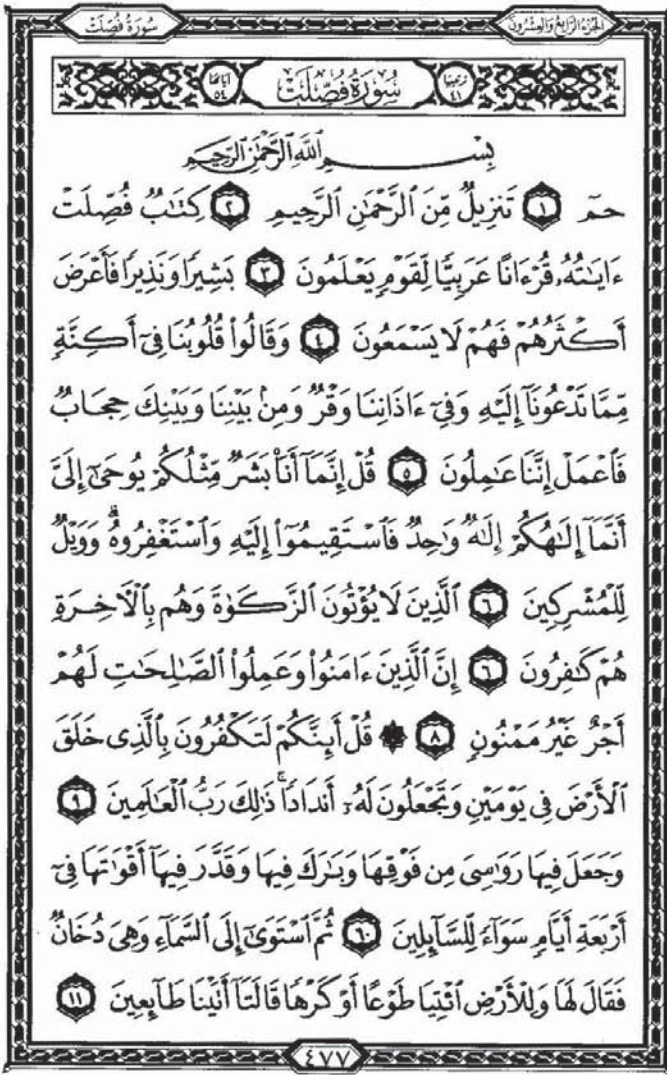 الجزء الرابع والعشرون سورة فصلت
ترتيبها ٤١ سُورَةُ فُصِّلَتْ آياتها ٥٤
بِسْمِ ٱللَّهِ ٱلرَّحْمَٰنِ ٱلرَّحِيمِ
حمٓ ١ تَنزِيلٌ مِّنَ ٱلرَّحْمَٰنِ ٱلرَّحِيمِ ٢ كِتَٰبٌ فُصِّلَتْ
ءَايَٰتُهُۥ قُرْءَانًا عَرَبِيًّا لِّقَوْمٍ يَعْلَمُونَ ٣ بَشِيرًا وَنَذِيرًا فَأَعْرَضَ
أَكْثَرُهُمْ فَهُمْ لَا يَسْمَعُونَ ٤ وَقَالُوا۟ قُلُوبُنَا فِىٓ أَكِنَّةٍ
مِّمَّا تَدْعُونَآ إِلَيْهِ وَفِىٓ ءَاذَانِنَا وَقْرٌ وَمِنۢ بَيْنِنَا وَبَيْنِكَ حِجَابٌ
فَٱعْمَلْ إِنَّنَا عَٰمِلُونَ ٥ قُلْ إِنَّمَآ أَنَا۠ بَشَرٌ مِّثْلُكُمْ يُوحَىٰٓ إِلَىَّ
أَنَّمَآ إِلَٰهُكُمْ إِلَٰهٌ وَٰحِدٌ فَٱسْتَقِيمُوٓا۟ إِلَيْهِ وَٱسْتَغْفِرُوهُ ۗ وَوَيْلٌ
لِّلْمُشْرِكِينَ ٦ ٱلَّذِينَ لَا يُؤْتُونَ ٱلزَّكَوٰةَ وَهُم بِٱلْءَاخِرَةِ
هُمْ كَٰفِرُونَ ٦ إِنَّ ٱلَّذِينَ ءَامَنُوا۟ وَعَمِلُوا۟ ٱلصَّٰلِحَٰتِ لَهُمْ
أَجْرٌ غَيْرُ مَمْنُونٍ ٨ ۞ قُلْ أَئِنَّكُمْ لَتَكْفُرُونَ بِٱلَّذِى خَلَقَ
ٱلْأَرْضَ فِى يَوْمَيْنِ وَتَجْعَلُونَ لَهُۥٓ أَندَادًا ۚ ذَٰلِكَ رَبُّ ٱلْعَٰلَمِينَ ٩
وَجَعَلَ فِيهَا رَوَٰسِىَ مِن فَوْقِهَا وَبَٰرَكَ فِيهَا وَقَدَّرَ فِيهَآ أَقْوَٰتَهَا فِىٓ
أَرْبَعَةِ أَيَّامٍ سَوَآءً لِّلسَّآئِلِينَ ٦٠ ثُمَّ ٱسْتَوَىٰٓ إِلَى ٱلسَّمَآءِ وَهِىَ دُخَانٌ
فَقَالَ لَهَا وَلِلْأَرْضِ ٱئْتِيَا طَوْعًا أَوْ كَرْهًا قَالَتَآ أَتَيْنَا طَآئِعِينَ ١١
٤٧٧